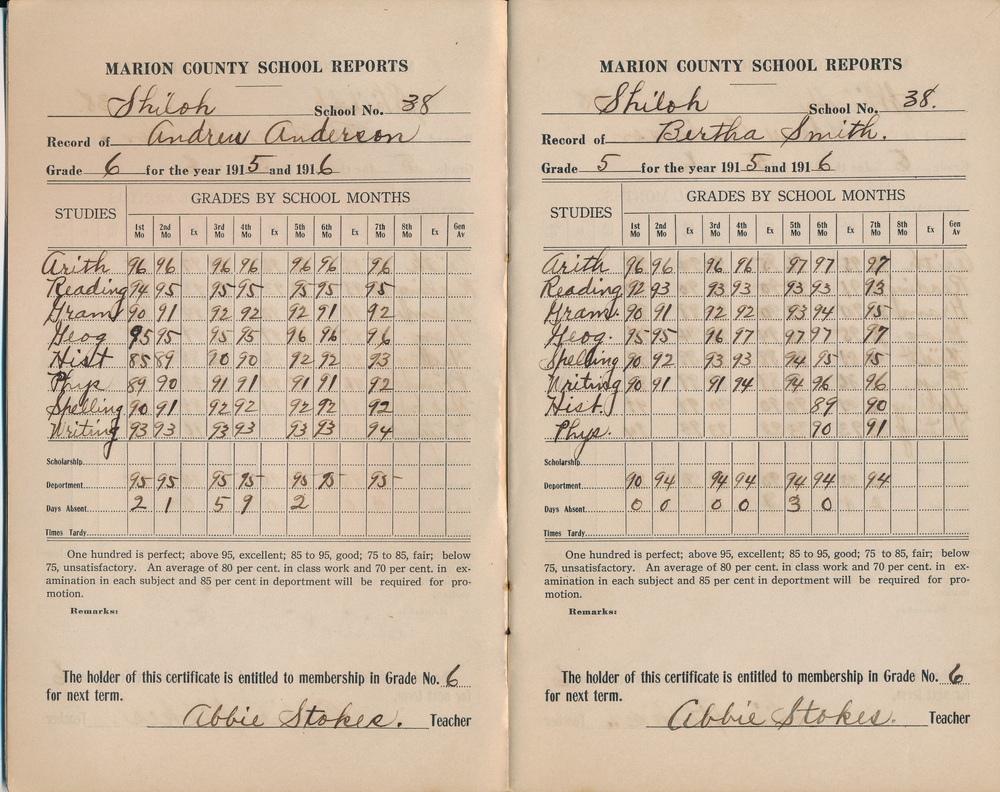 MARION COUNTY SCHOOL REPORTS
Shiloh School No. 38
Record of Andrew Anderson
Grade 6 for the year 1915 and 1916
STUDIES GRADES BY SCHOOL MONTHS
1st Mo 2nd Mo Ex 3rd Mo 4th Mo Ex 5th Mo 6th Mo Ex 7th Mo 8th Mo Ex Gen Av
Arith 96 96 96 96 96 96 96
Reading 94 95 95 95 95 95 95
Gram 90 91 92 92 92 91 92
Geog 95 95 95 95 96 96 96
Hist 85 89 90 90 92 92 93
Phys 89 90 91 91 91 91 92
Spelling 90 91 92 92 92 92 92
Writing 93 93 93 93 93 93 94
Scholarship
Department 95 95 95 95 95 95 95
Days Absent 2 1 5 9 2
Times Tardy
One hundred is perfect; above 95, excellent; 85 to 95, good; 75 to 85, fair; below
75, unsatisfactory. An average of 80 per cent. in class work and 70 per cent. in ex-
amination in each subject and 85 per cent in deportment will be required for pro-
motion.
Remarks:
The holder of this certificate is entitled to membership in Grade No. 6
for next term.
Abbie Stokes. Teacher
MARION COUNTY SCHOOL REPORTS
Shiloh School No. 38.
Record of Bertha Smith.
Grade 5 for the year 1915 and 1916
STUDIES GRADES BY SCHOOL MONTHS
1st Mo 2nd Mo Ex 3rd Mo 4th Mo Ex 5th Mo 6th Mo Ex 7th Mo 8th Mo Ex Gen Av
Arith 96 96 96 96 97 97 97
Reading 92 93 93 93 93 93 93
Gram. 90 91 92 92 93 94 95
Geog. 95 95 96 97 97 97 97
Spelling 90 92 93 93 94 95 95
Writing 90 91 91 94 94 96 96
Hist. 89 90
Phys. 90 91
Scholarship
Department 90 94 94 94 94 94 94
Days Absent 0 0 0 0 3 0
Times Tardy
One hundred is perfect; above 95, excellent; 85 to 95, good; 75 to 85, fair; below
75, unsatisfactory. An average of 80 per cent. in class work and 70 per cent. in ex-
amination in each subject and 85 per cent in deportment will be required for pro-
motion.
Remarks:
The holder of this certificate is entitled to membership in Grade No. 6
for next term.
Abbie Stokes. Teacher